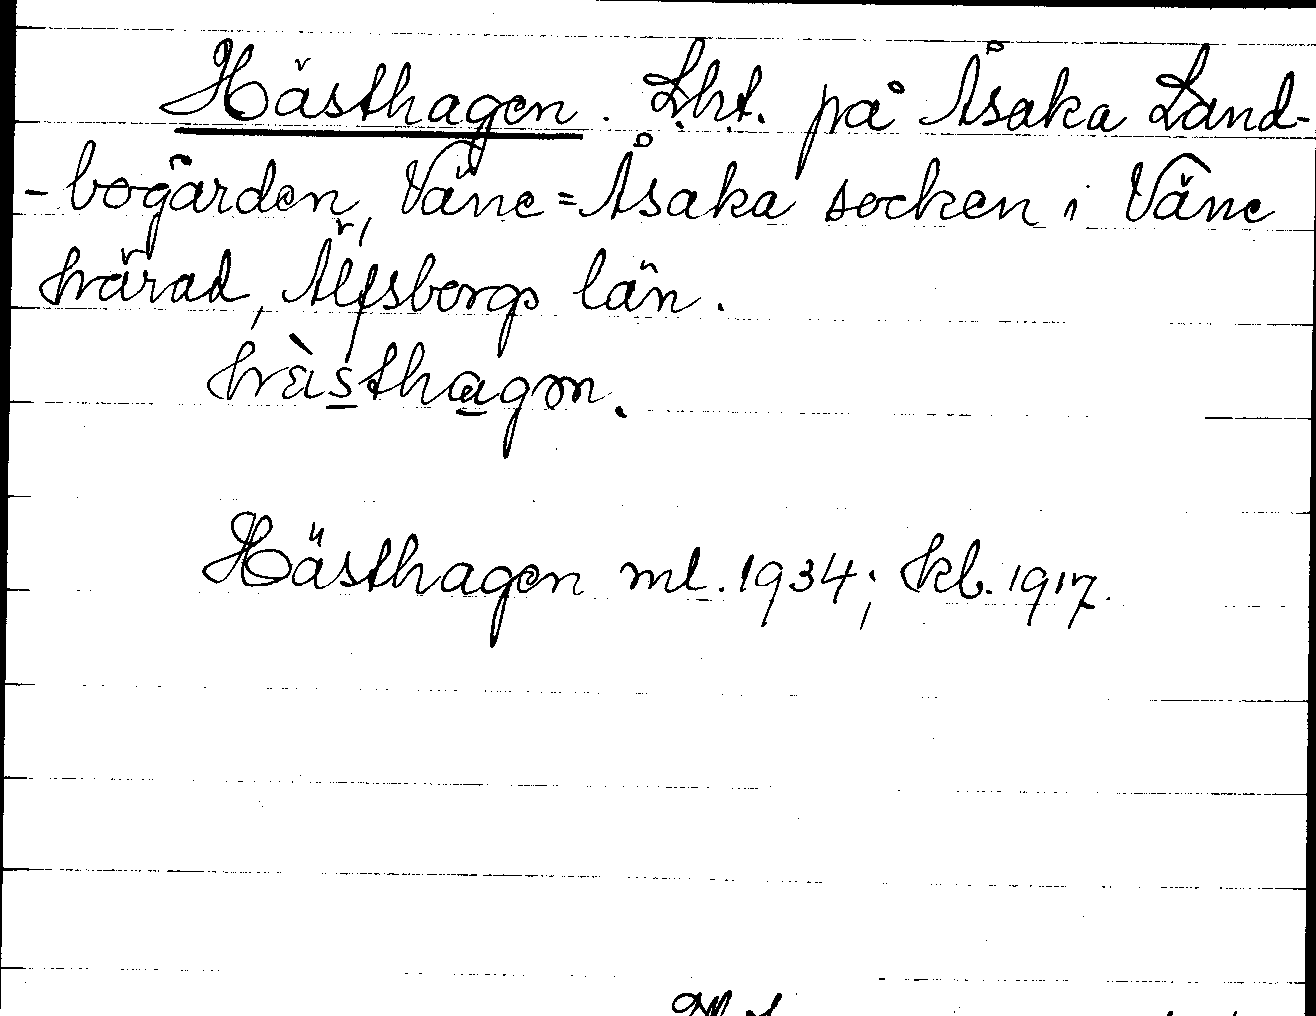 Hästhagen. Lht. på Åsaka Land-
-bogården, Väne=Åsaka socken i Väne
härad, Älfsborgs län.
hàsthagən.
Hästhagen ml. 1934; kb. 1917.